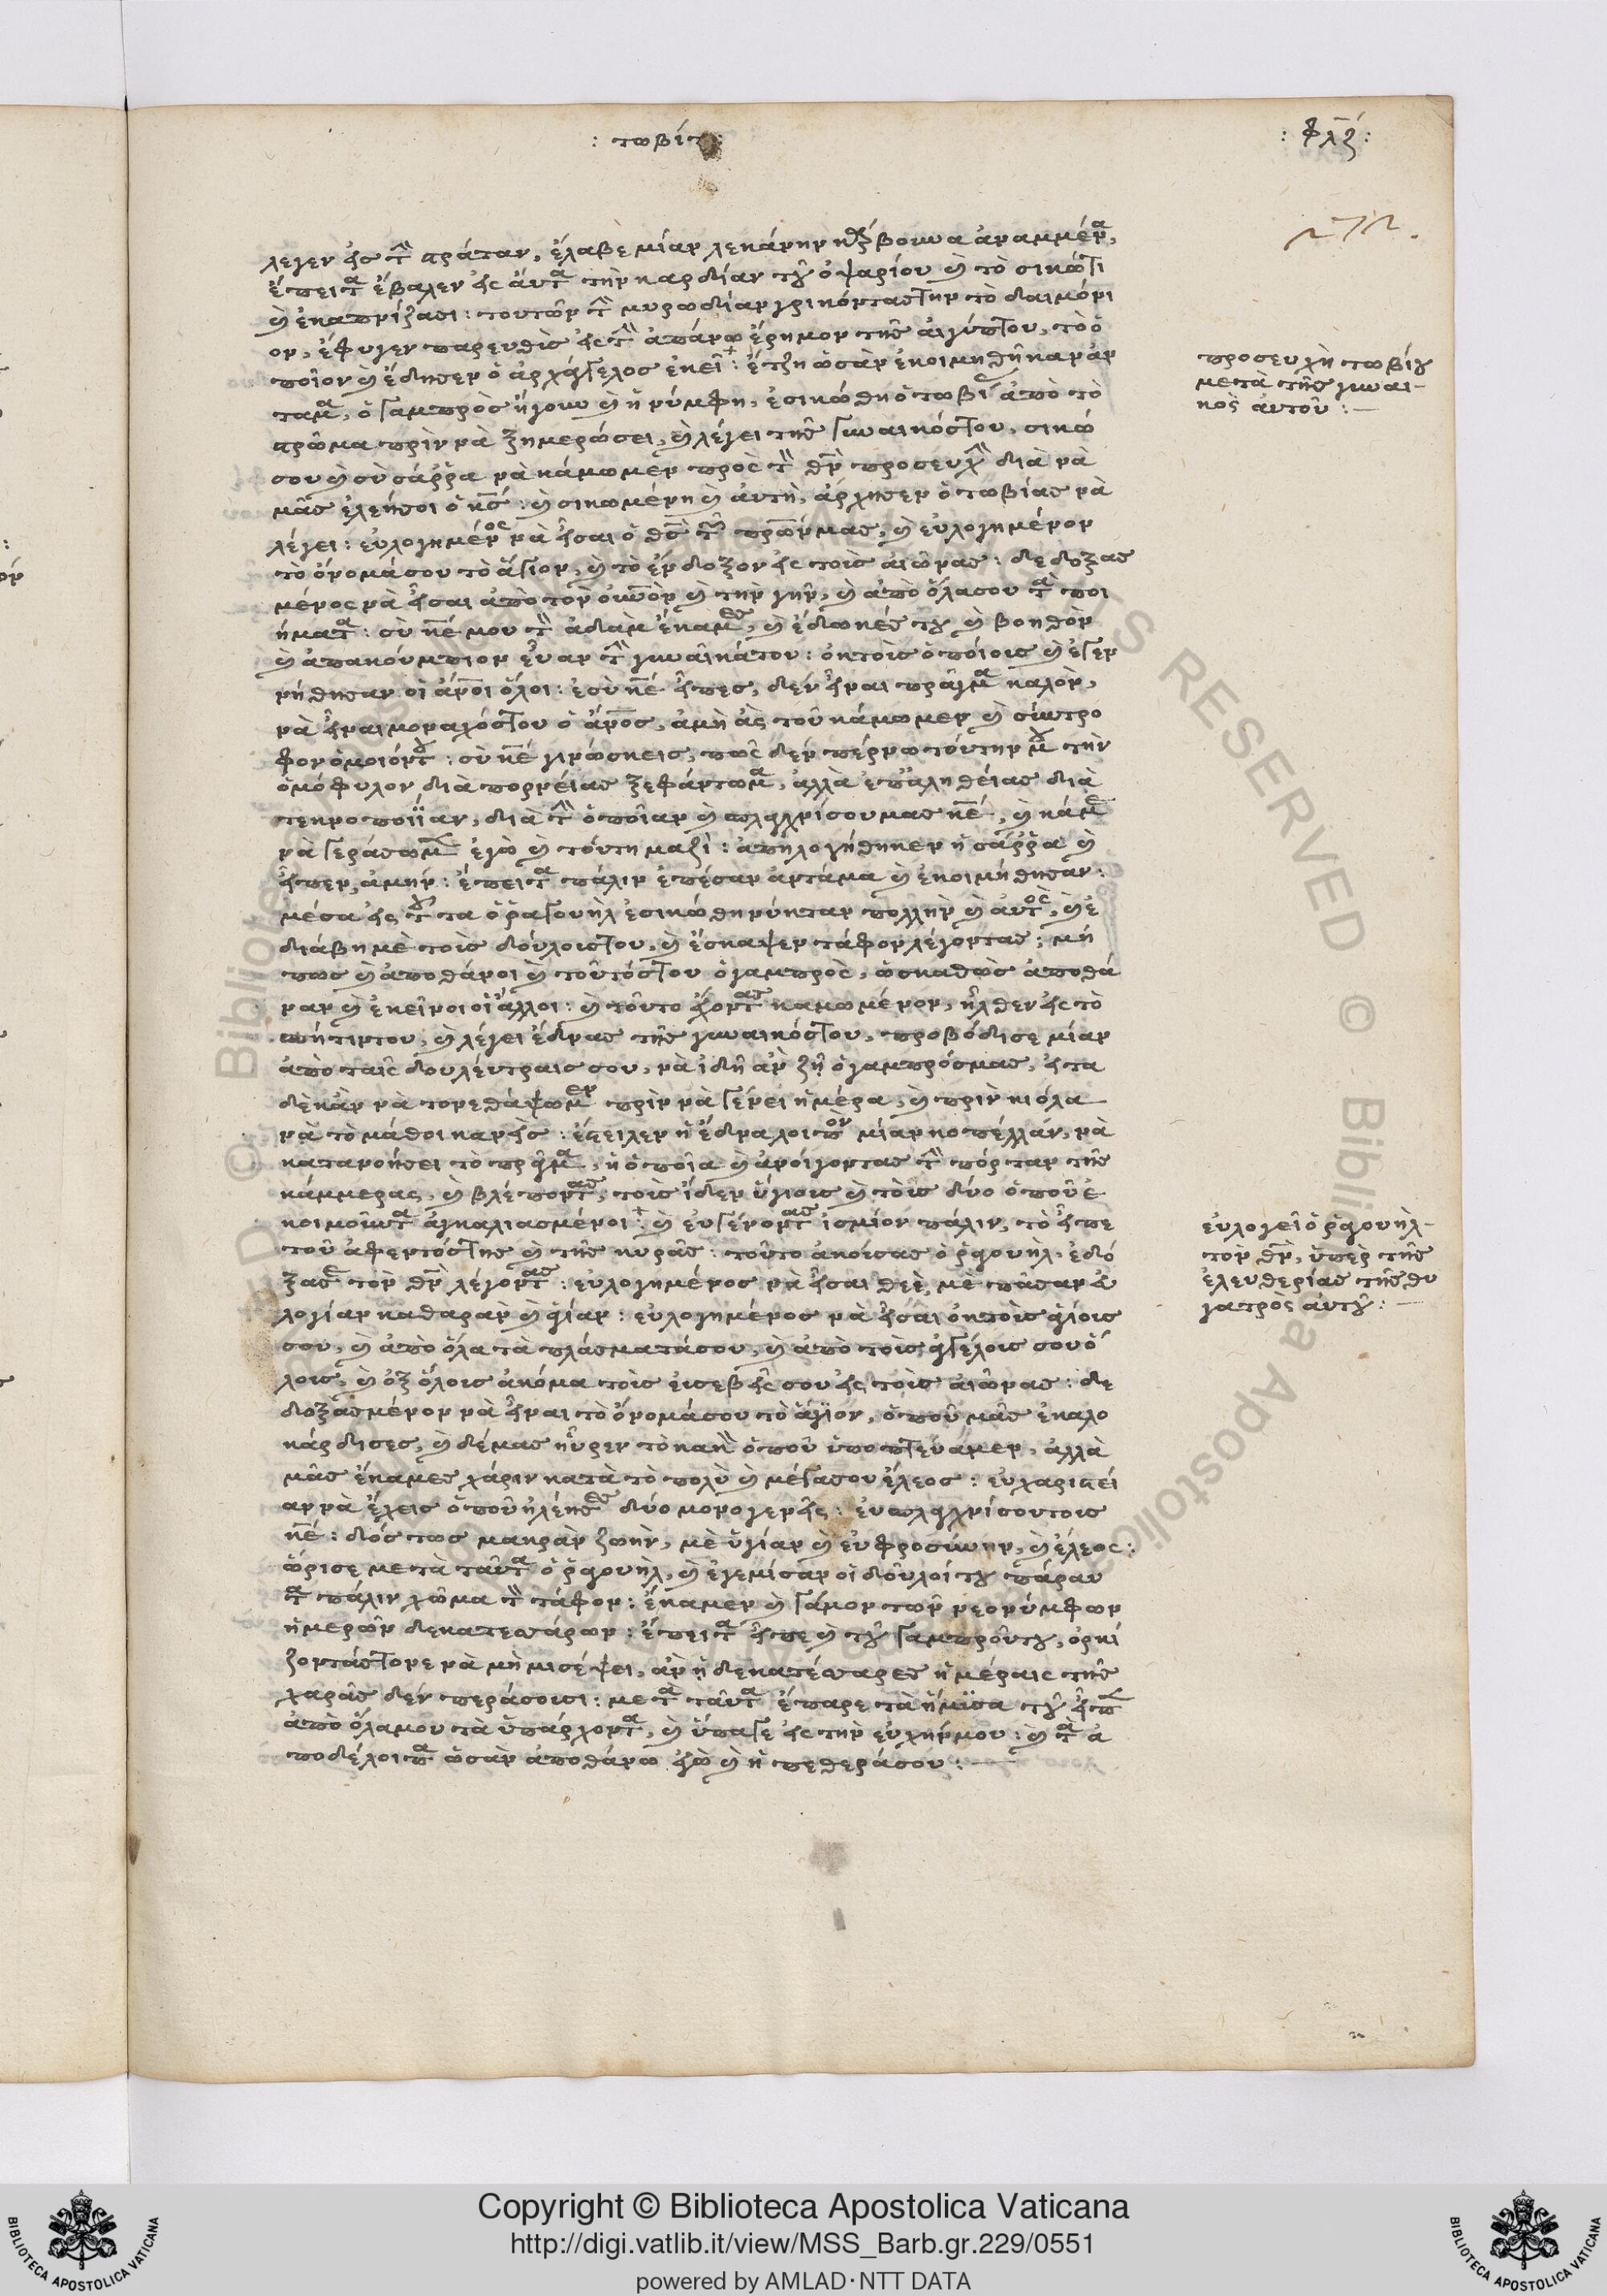 : τωβίτ :
: φλζ :
λεγεν εἰς τὴν στράταν, ἔλαβε μίαν λεκάνην κάρβουνα ἀναμμένα,
ἔπειτα ἔβαλεν εἰς αὐτὰ τὴν καρδίαν τοῦ ὀψαρίου καὶ τὸ σικώτι
καὶ ἐκαπνίζασι : τούτων τὴν μυρωδίαν γρικόντας την τὸ δαιμόνι
ον, ἔφυγεν παρευθὺς εἰς τὴν ἀπάνω ἔρημον τῆς αἰγύπτου, τὸ ὁ
ποῖον καὶ ἔδησεν ὁ ἀρχάγγελος ἐκεῖ : ἔτζη ὡσὰν ἐκοιμηθῆκαν ἀν
τάμα, ὁ γαμπρὸς ἤγουν καὶ ἡ νύμφη, ἐσικώθη ὁ τωβίας ἀπὸ τὸ
στρῶμα πρὶν νὰ ξημερώσει, καὶ λέγει τῆς γυναικός του, σικώ
σου καὶ σὺ σάρρα νὰ κάμωμεν πρὸς τὸν θν προσευχὴν διὰ νὰ
μᾶς ἐλεήσοι ὁ κς : καὶ σικωμένη καὶ αὐτὴ, ἄρχησεν ὁ τωβίας νὰ
λέγει : εὐλογημένος νὰ εἶσαι ὁ θς τῶν πρων μας, καὶ εὐλογημένον
τὸ ὄνομά σου τὸ ἅγιον, καὶ τὸ ἔνδοξον εἰς τοὶς αἰῶνας : δεδοξας
μένος νὰ εἶσαι ἀπὸ τὸν οὐνὸν καὶ τὴν γῆν, καὶ ἀπὸ ὅλα σου τὰ ποι
ήματα : σὺ κέ μου τὸν ἀδὰμ ἔκαμες, καὶ ἔδωκές του καὶ βοηθὸν
καὶ ἀπακούμπιον εὔαν τὴν γυναῖκά του : ἐκ τοὶς ὁποίοις καὶ ἐγεν
νήθησαν οἱ ἄνοι ὅλοι : ἐσὺ κέ εἶπες, δὲν εἶναι πρᾶγμα καλὸν,
νὰ εἶναι μοναχός του ὁ ἄνος, ἀμὴ ἂς τοῦ κάμωμεν καὶ σύντρο
φον ὁμοιόν του : σὺ κέ γινώσκεις, πῶς δὲν πέρνω τούτην μου τὴν
ὁμόφυλον διὰ πορνείας ξεφάντωμα, ἀλλὰ ἐπ' ἀληθείας διὰ
τεκνοποιίαν, διὰ τὴν ὁποῖαν καὶ σπλαχνίσου μας κέ, καὶ κάμε
νὰ γεράσωμε ἐγὼ καὶ τούτη μαζὶ : ἀπηλογήθηκεν ἡ σάρρα καὶ
εἶπεν, ἀμὴν : ἔπειτα πάλιν ἐπέσαν ἀντάμα καὶ ἐκοιμήθησαν :
μέσα εἰς τοῦτα ὁ ῥαγουὴλ ἐσικώθη νύκταν πολλὴν καὶ αὐτὸς, καὶ ἐ
διάβη μὲ τοὶς δούλοις του, καὶ ἔσκαψεν τάφον λέγοντας : μή
πως καὶ ἀποθάνοι καὶ τοῦτός του ὁ γαμπρὸς, ὡσκαθὼς ἀποθά
ναν καὶ ἐκεῖνοι οἱ ἄλλοι : καὶ τοῦτο ἔχοντας καμωμένον, ἦλθεν εἰς τὸ
σπήτιν του, καὶ λέγει ἔδνας τῆς γυναικός του, προβόδισε μίαν
ἀπὸ ταῖς δουλεύτραις σου, νὰ ἰδῆ ἂν ζῆ ὁ γαμπρός μας, εἴτα
δὲ κἂν νὰ τονε θάψωμεν πρὶν νὰ γένει ἡμέρα, καὶ πρὶν κιόλα
νὰ τὸ μάθοι κανείς : ἔστειλεν ἡ ἔδνα λοιπὸν μίαν κοπέλλαν, νὰ
κατανοήσει τὸ πρᾶγμα, ἡ ὁποῖα καὶ ἀνοίγοντας τὴν πόρταν τῆς
κάμμερας, καὶ βλέποντας, τοὶς ἴδεν ὕγιοις καὶ τοὶς δύο ὁποῦ ἐ
κοιμοῦντα ἀγκαλιασμένοι : καὶ εὐγένοντας ἰσμίον πάλιν, τὸ εἶπε
τοῦ ἀφεντός της καὶ τῆς κυρᾶς : τοῦτο ἀκούσας ὁ ῥαγουὴλ, ἐδό
ξασε τὸν θν λέγοντας : εὐλογημένος νὰ εἶσαι θεὲ, μὲ πᾶσαν εὐ
λογίαν καθαρὰν καὶ ἁγίαν : εὐλογημένος νὰ εἶσαι ἐκ τοὶς ἁγίοις
σου, καὶ ἀπὸ ὅλα τὰ πλάσματά σου, καὶ ἀπὸ τοὶς ἀγγέλοις σου ὅ
λοις, καὶ ἐξ ὅλοις ἀκόμα τοὶς εὐσεβεῖς σου εἰς τοὶς αἰῶνας : δε
δοξασμένον νὰ εἶναι τὸ ὄνομά σου τὸ ἅγιον, ὁποῦ μᾶς ἐκαλο
κάρδισες, καὶ δέ μας ηὗρεν τὸ κακὸν ὁποῦ ὑποπτεύαμεν, ἀλλὰ
μᾶς ἔκαμες χάριν κατὰ τὸ πολὺ καὶ μέγα σου ἔλεος : εὐχαριστεί
αν νὰ ἔχεις ὁποῦ ἠλέησες δύο μονογενεῖς : εὐσπλαχνίσου τοις
κέ : δός τως μακρὰν ζωὴν, μὲ ὑγίαν καὶ εὐφροσύνην, καὶ ἔλεος :
ὥρισε μετὰ ταῦτα ὁ ῥαγουὴλ, καὶ ἐγεμίσαν οἱ δοῦλοί του πάραυ
τα πάλιν χῶμα τὸν τάφον : ἔκαμεν καὶ γάμον τῶν νεονύμφων
ἡμερῶν δεκατεσσάρων : ἔπειτα εἶπε καὶ τοῦ γαμπροῦ του, ὁρκί
ζοντάς τονε νὰ μὴ μισέψει, ἂν ἡ δεκατέσσαρες ἡμέραις τῆς
χαρᾶς δὲν περάσουσι : μετὰ ταῦτα ἔπαρε τὰ ἥμισα τοῦ εἶπεν
ἀπὸ ὅλα μου τὰ ὑπάρχοντα, καὶ ὕπαγε εἰς τὴν εὐχήν μου : καὶ τὰ ἀ
ποδέλοιπα ὡσὰν ἀποθάνω ἐγὼ καὶ ἡ πεθερά σου :
προσευχὴ τωβίου
μετὰ τῆς γυναι-
κὸς αὐτοῦ :
εὐλογεῖ ὁ ῥαγουὴλ
τὸν θν, ὑπὲρ τῆς
ἐλευθερίας τῆς θυ
γατρὸς αὐτοῦ :
© Biblioteca Apostolica Vaticana
Copyright © Biblioteca Apostolica Vaticana
http://digi.vatlib.it/view/MSS_Barb.gr.229/0551
powered by AMLAD·NTT DATA
BIBLIOTECA APOSTOLICA VATICANA
BIBLIOTECA APOSTOLICA VATICANA